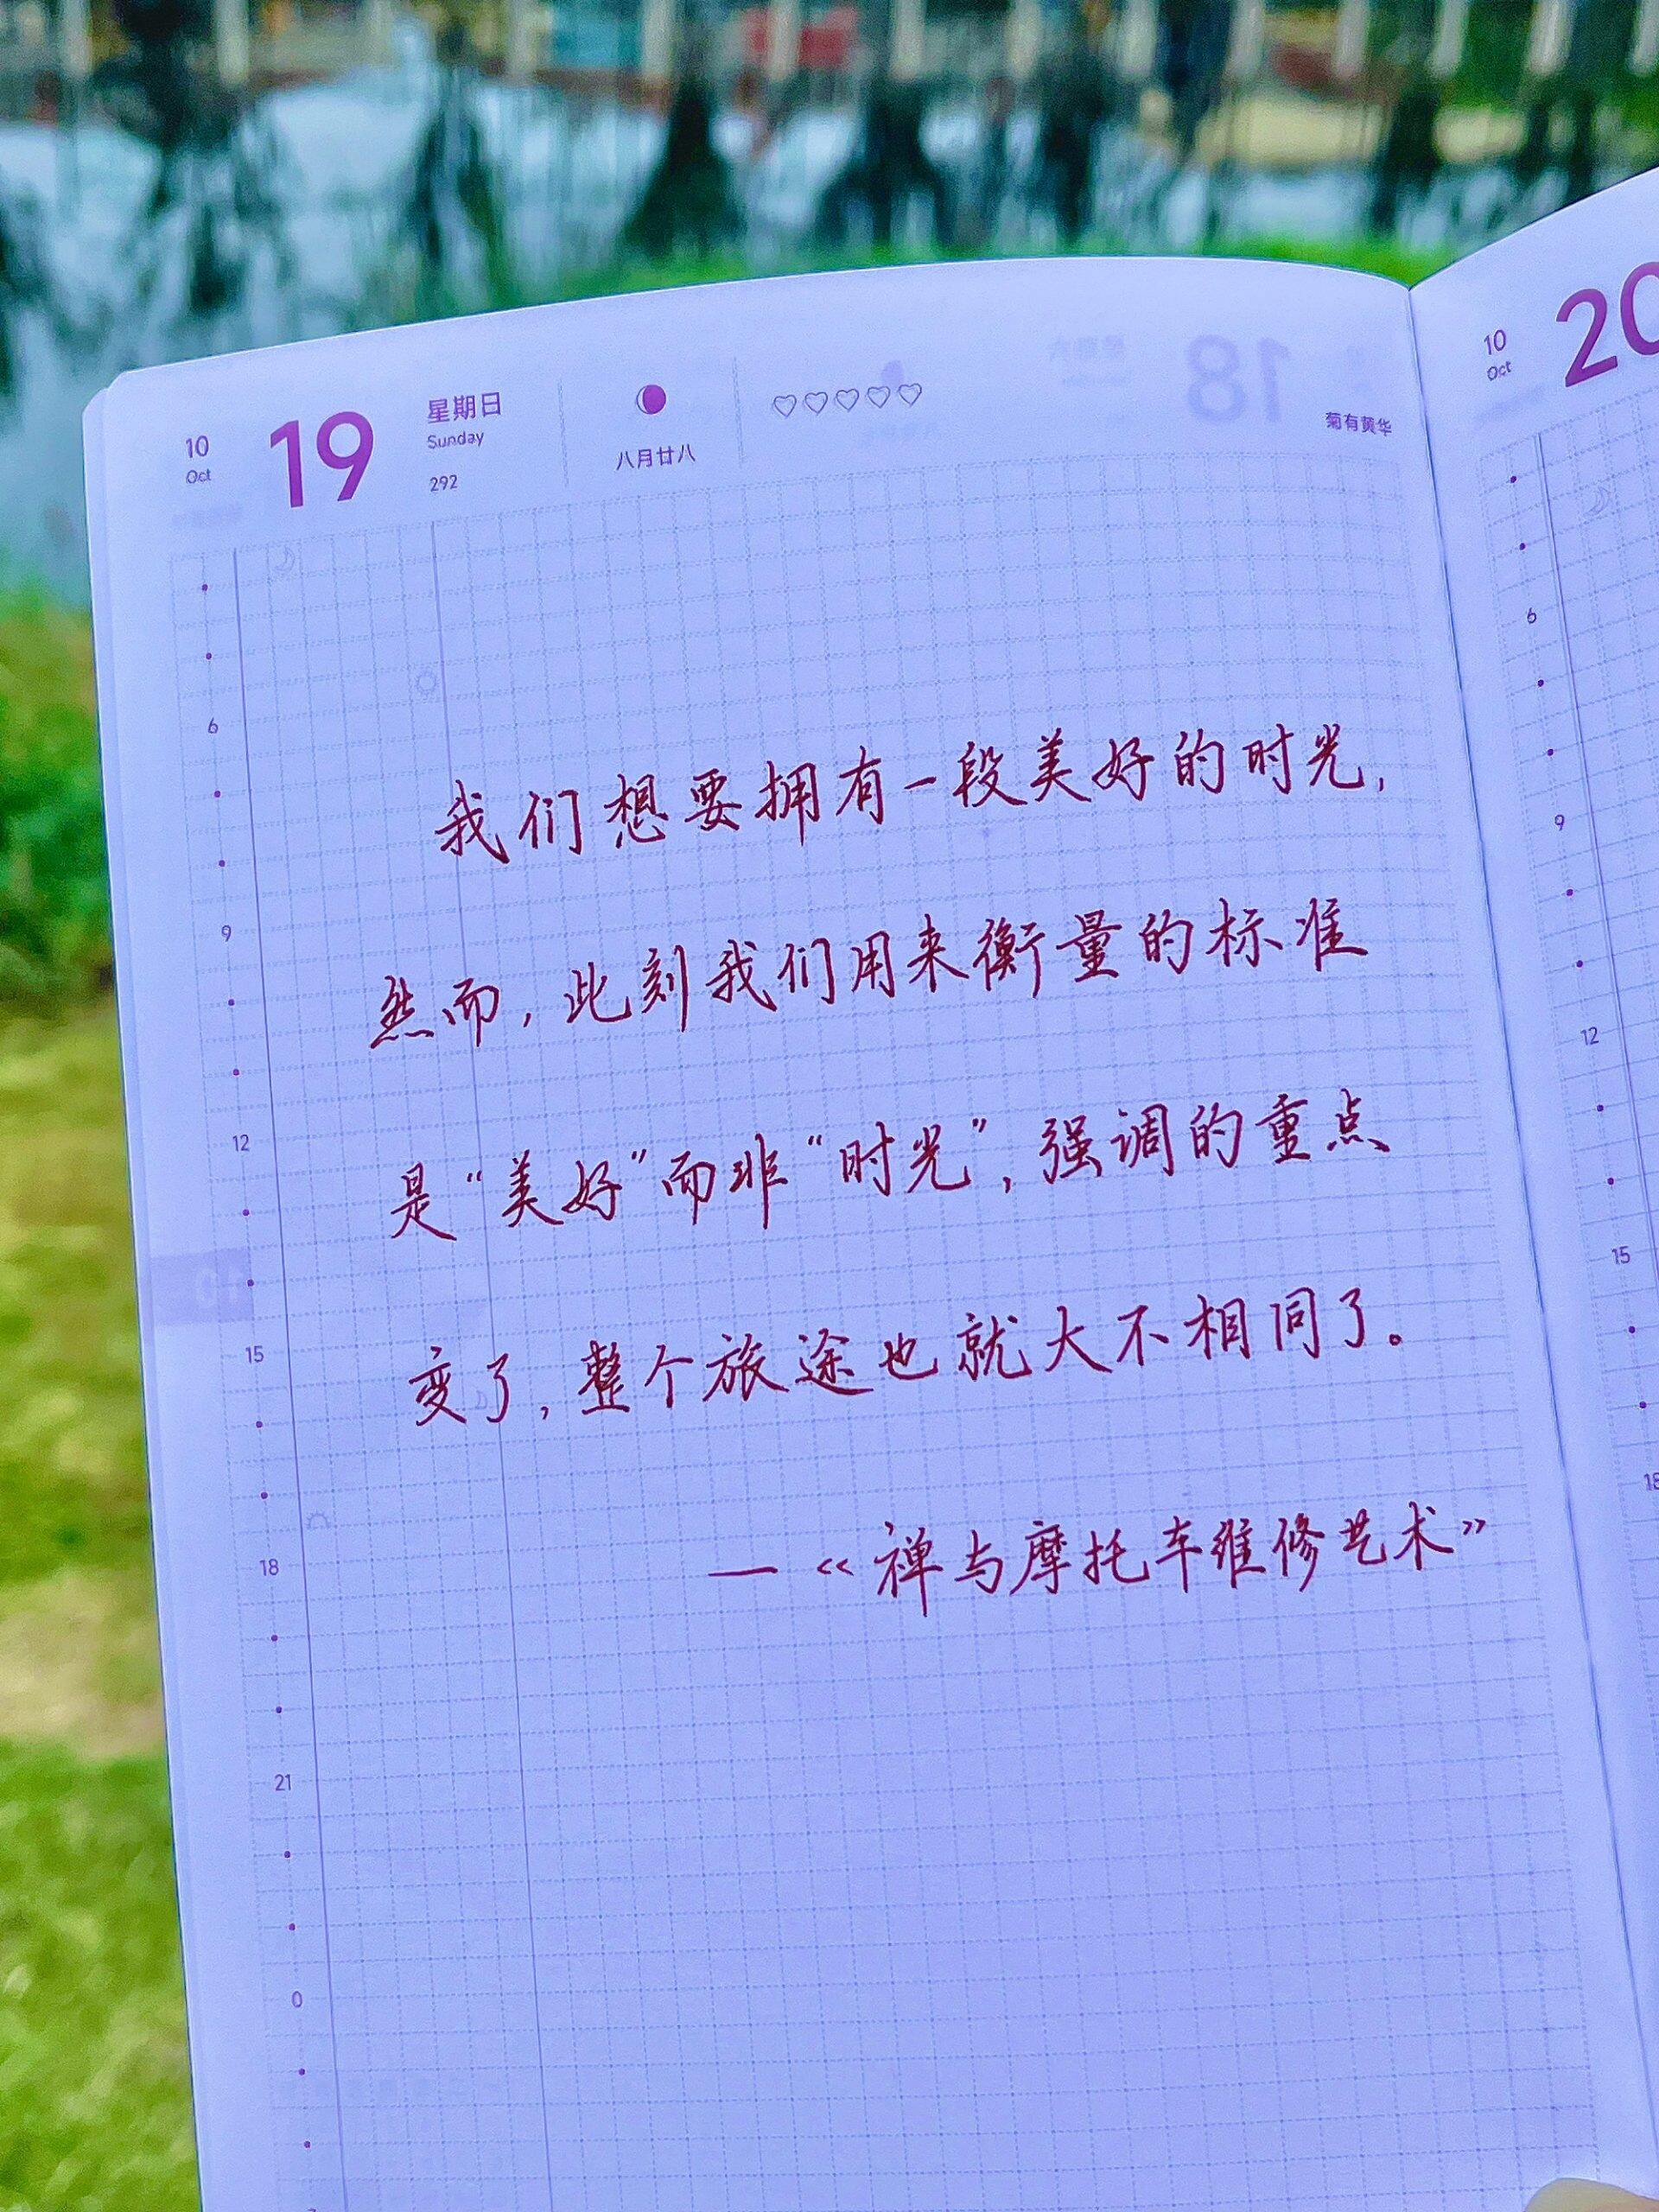 10
Oct
19
星期日
Sunday
292
八月廿八
菊有黄华
10
Oct
20
我们想要拥有一段美好的时光,
然而,此刻我们用来衡量的标准
是“美好”而非“时光”,强调的重点
变了,整个旅途也就大不相同了。
—《禅与摩托车维修艺术》
6
9
12
15
18
21
0
6
9
12
15
18